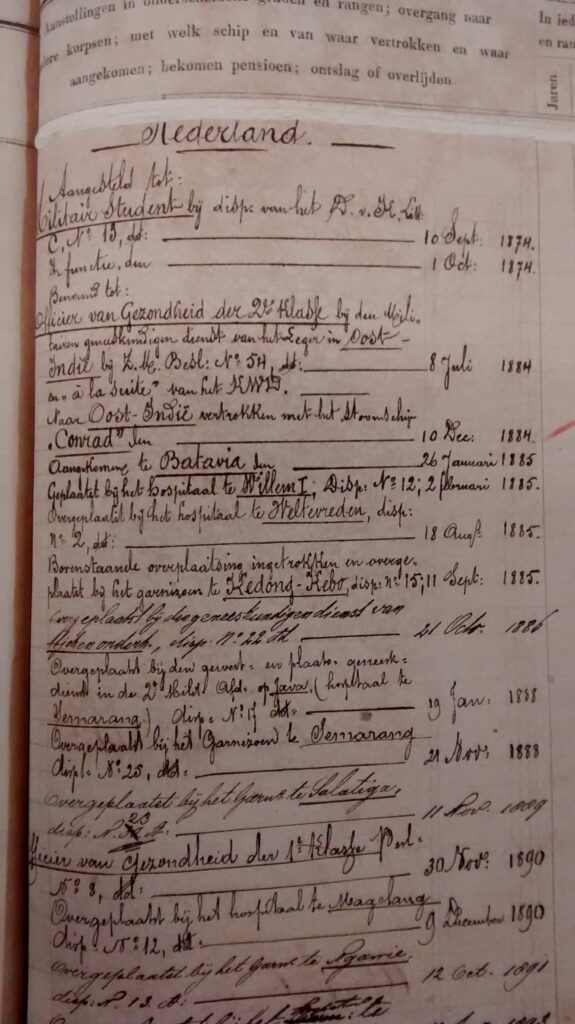 Aanstellingen in onderscheidene graden en rangen; overgang naar
korpsen; met welk schip en van waar vertrokken en waar
aangekomen; bekomen pensioen; ontslag of overlijden.
In ied
en ran
Jaren.
Nederland.
Aangesteld tot:
Militair Student bij disp: van het D. v. K. Litt:
C, No 13, dd: 10 Sept: 1874.
In functie, den 1 Oct: 1874.
Benoemd tot:
Officier van Gezondheid der 2e Klasse bij den Mili-
tairen geneeskundigen dienst van het Leger in Oost-
Indië bij Z.M. Besl: No 54, dd: 8 Juli 1884
en „à la suite" van het KWIS.
Naar Oost-Indië vertrokken met het Stoomschip
„Conrad" den 10 Dec: 1884.
Aangekomen te Batavia den 26 Januari 1885
Geplaatst bij het hospitaal te Willem I, Disp: No 12, 2 februari 1885.
Overgeplaatst bij het hospitaal te Weltevreden, disp:
no 2, dd: 18 Augs. 1885.
Bovenstaande overplaatsing ingetrokken en overge-
plaatst bij het garnizoen te Kedong-Kebo, disp: no 15, 11 Sept: 1885.
Overgeplaatst bij den geneeskundigen dienst van
disp: No 22 dd 21 Oct. 1886
Overgeplaatst bij den gewest- en plaats- geneesk-
dienst in de 2e Milit. Afd. op Java, (hospitaal te
Semarang) disp: No 17 dd: 19 Jan: 1888
Overgeplaatst bij het Garnizoen te Semarang
disp: No 25, dd: 21 Nov: 1888
Overgeplaatst bij het Garn: te Salatiga,
disp: N. 23 dd: 11 Nov. 1889
Officier van Gezondheid der 1e Klasse Besl:
No 8, dd: 30 Nov: 1890
Overgeplaatst bij het hospitaal te Magelang
disp: No 12, dd: 9 December 1890
Overgeplaatst bij het Garn: te Ngawie
disp: N. 13 dd: 12 Oct. 1891
bij het te